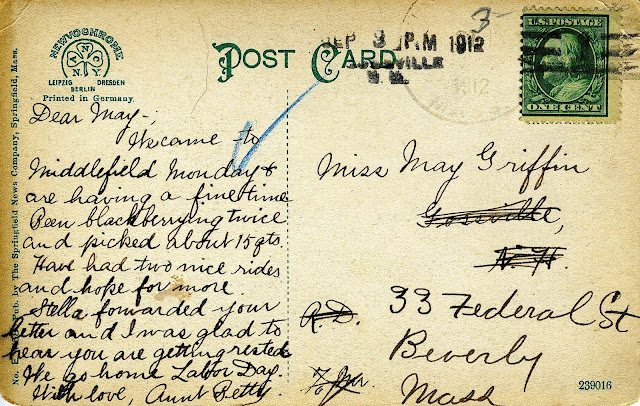 NEWVOCHROME
A N C
N.Y.
LEIPZIG DRESDEN
BERLIN
Printed in Germany.
POST CARD
SEP 3 PM 1912
3-
U.S. POSTAGE
ONE CENT
Pub. by The Springfield News Company, Springfield, Mass.
Dear May-;
We came to
Middlefield Monday &
are having a fine time
Been blackberrying twice
and picked about 15 qts.
Have had two nice rides
and hope for more.
Stella forwarded your
letter and I was glad to
hear you are getting rested
We go home Labor Day.
With love, Aunt Betty.
Miss May Griffin
N.H.
R.D.
33 Federal St
Beverly
Mass
239016